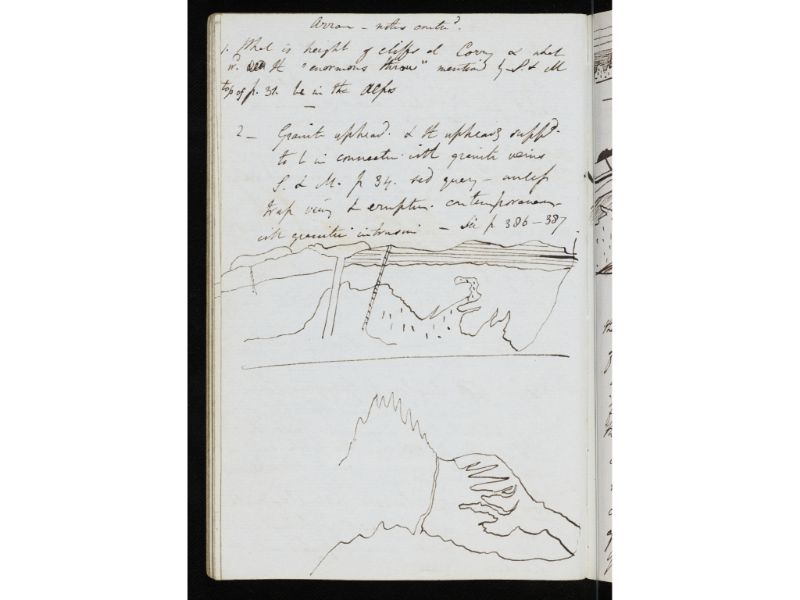 Arran - notes contd.
1. What is height of cliffs at Corry & what
wd. the "enormous throw" mentiond by S & M
top of p. 31 be in the Alps
2 - Granite upheavd. & the upheavg supposd.
to b in connectn with granite veins
S. & M. p 34. sed query - unless
trap veins & eruptn. contemporaneous
with granitic intrusion - See p 386-387